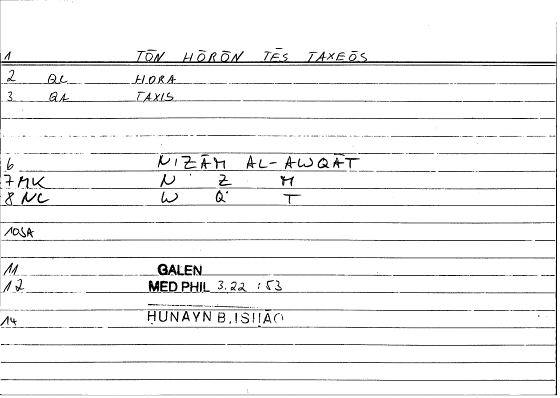 1 TŌN HŌRŌN TĒS TAXEŌS
2 QL HORA
3 QL TAXIS
6 NIZĀM AL-AWQĀT
7 MK N Z M
8 NC W Q T
10SA
11 GALEN
12 MED PHIL 3.22 :53
14 ḤUNAYN B. ISḤĀQ